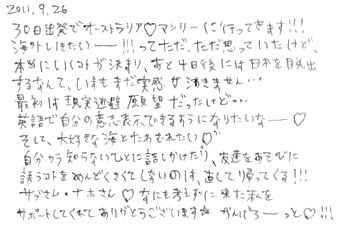 2011.9.26
30日出発でオーストラリア♡マンリーに行ってきます!!!
海外いきたいー!!!ってただ、ただ思っていたけど、
本当にいくコトが決まり、あと4日後には日本を脱出
するなんて、いまもまだ実感が湧きません…
最初は現実逃避願望だったけど…
英語で自分の意志表示できるようになりたいなー♡
そして、大好きな海とたわむれたい♡
自分から知らないひとに話しかけたり、友達をあそびに
誘うコトをめんどくさくてしないのは、直して帰ってくる!!!
サブさん・ナホさん♡なにも考えずに来た私を
サポートしてくれてありがとうございます☆がんばろーっと♡!!!